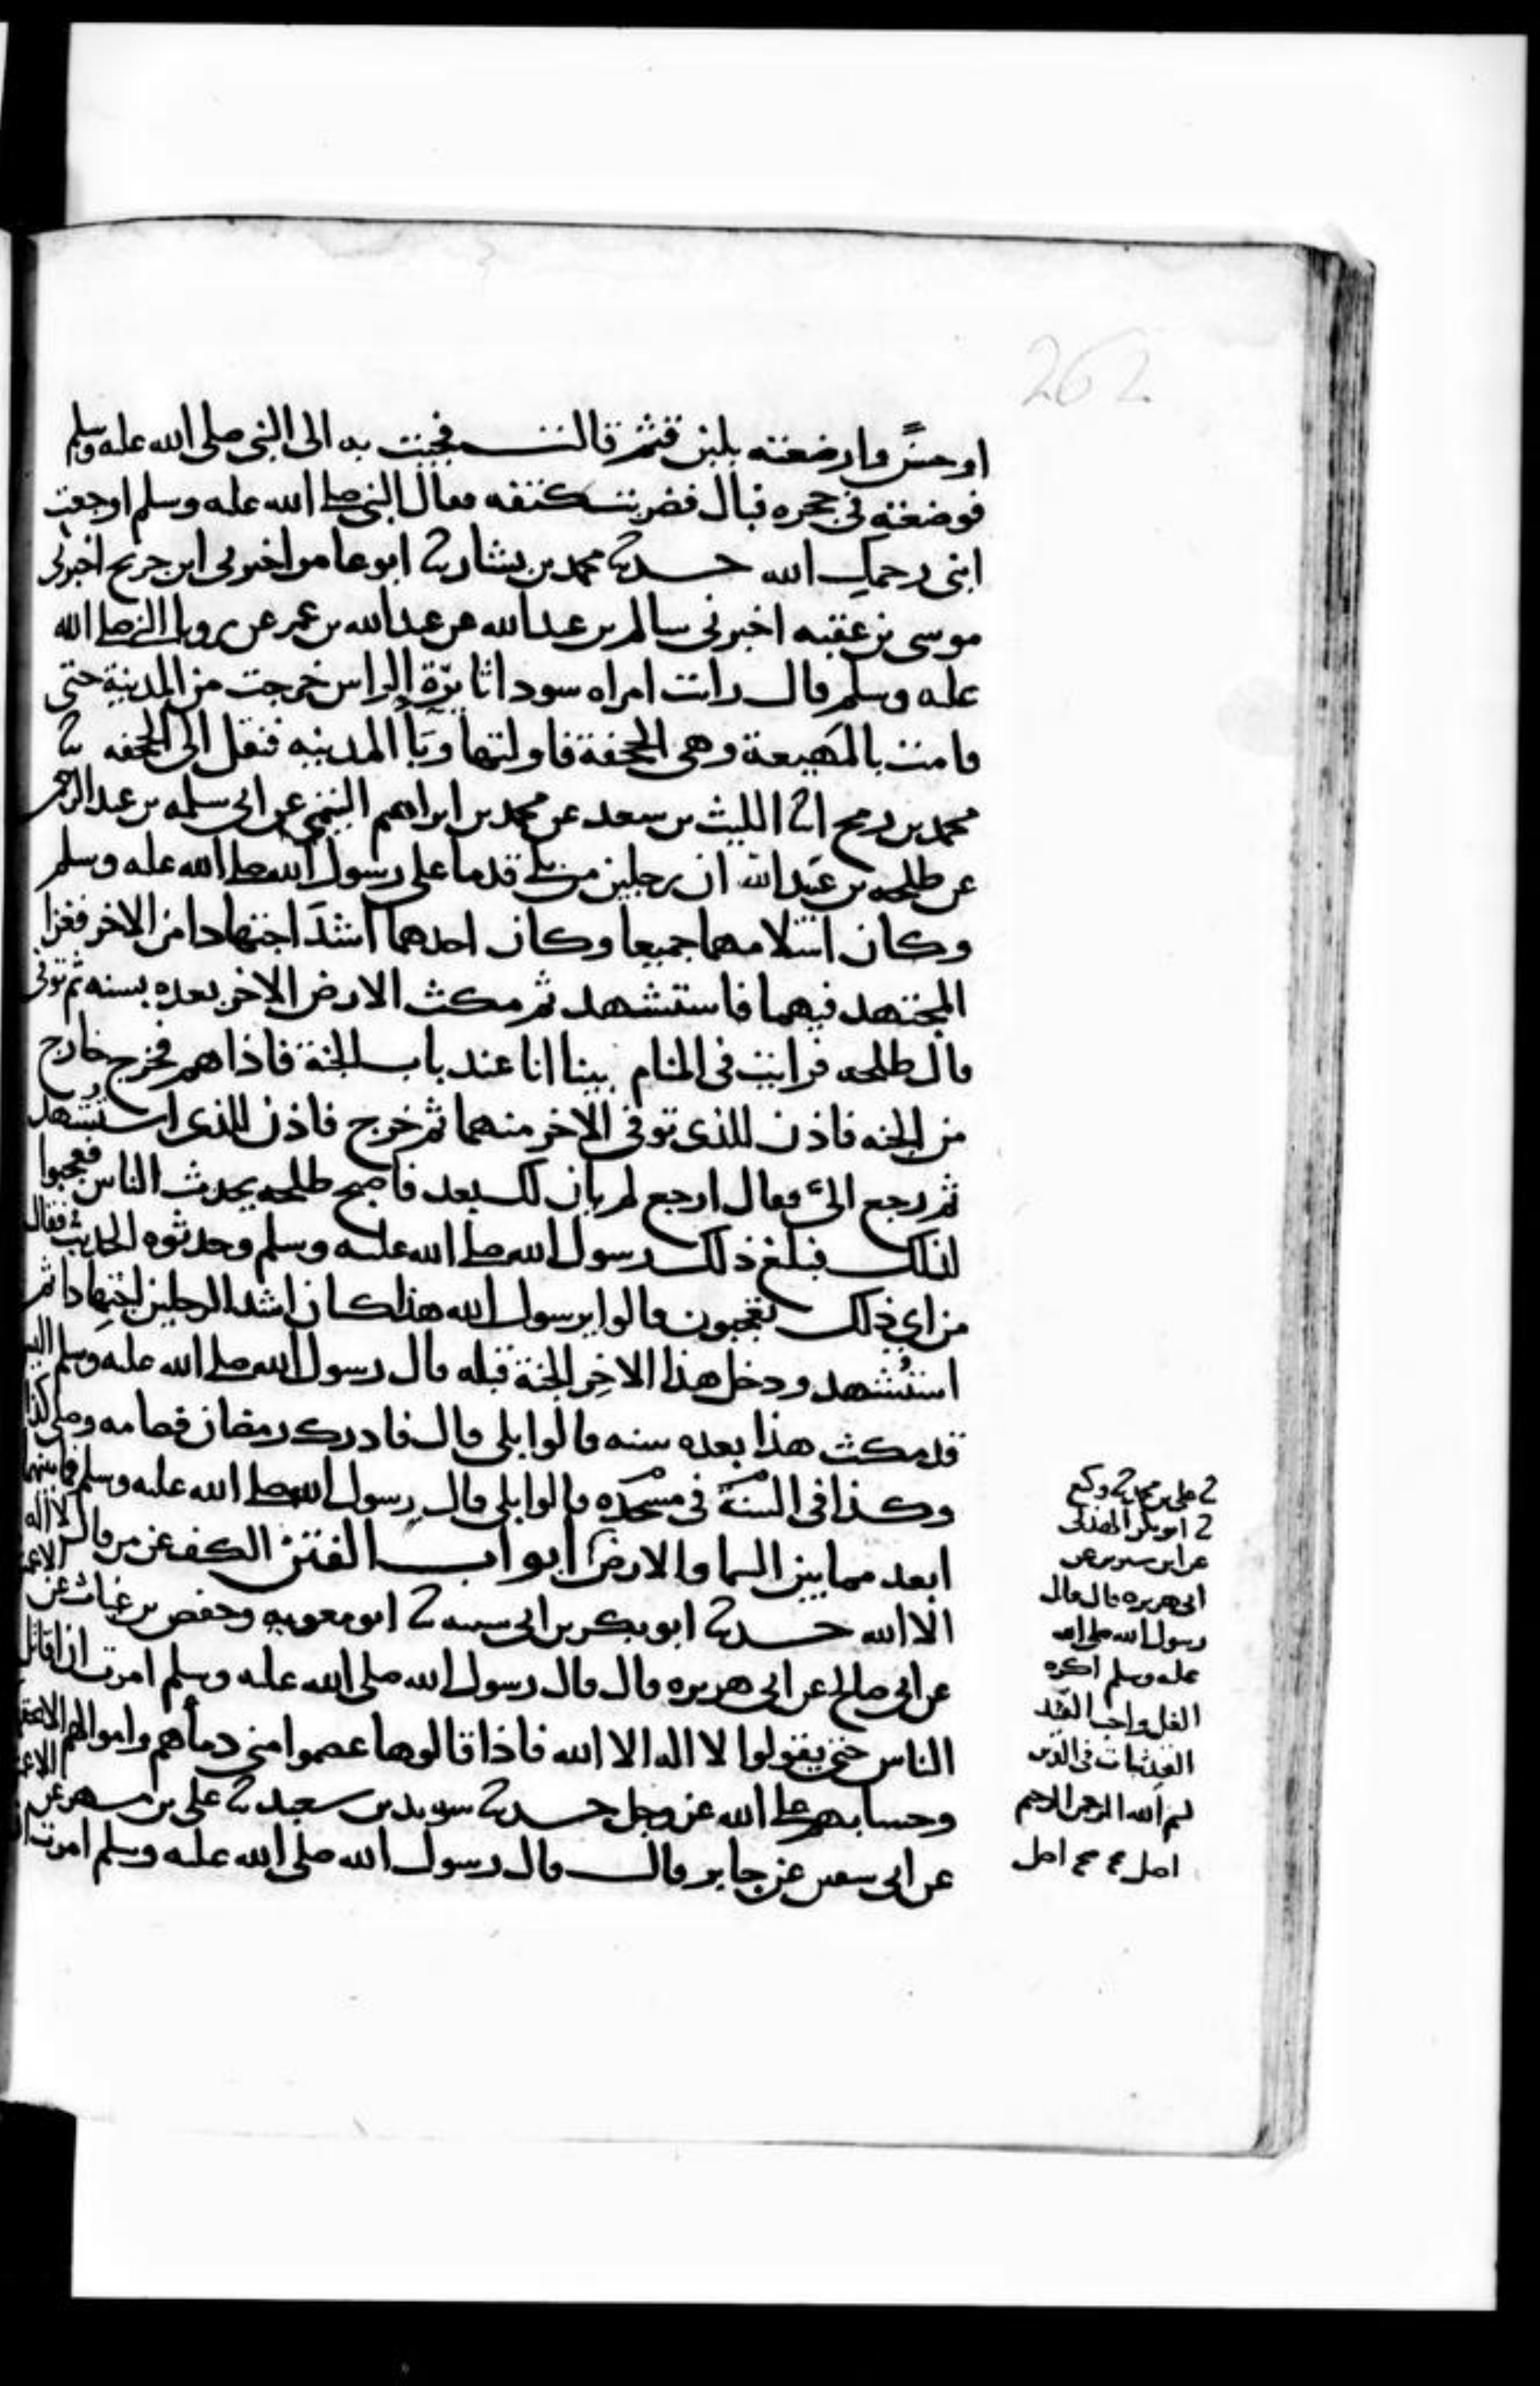 262
او حسنً وارضعته بلبن قثم قالت فجئت به الى النبي صلى الله عله وسلم
فوضعته في حجره فبال فضربت كتفه فقال النبي صلى الله عله وسلم اوجعت
ابني رحمك الله حدثنا محمد بن بشار ثنا ابو عامر اخبرني ابن جريج اخبرني
موسى بن عقبه اخبرني سالم بن عبدالله عن عبدالله بن عمر عن رويا النبي صلى الله
عله وسلم قال رات امراه سودا ثايرة الراس خرجت من المدينة حتى
قامت بالمهيعة وهي الجحفة فاولتها وبأ المدينه فنقل الى الجحفه ثنا
محمد بن رمح انا الليث بن سعد عن محمد بن ابراهيم التيمي عن ابي سلمه بن عبد الرحمن
عن طلحه بن عبيدالله ان رجلين من بلي قدما على رسول الله صلى الله عله وسلم
وكان اسلامهما جميعا وكان احدهما اشد اجتهادا من الاخر فغزا
المجتهد فيهما فاستشهد ثم مكث الارض الاخر بعده بسنه ثم توفي
قال طلحه فرايت في المنام بينا انا عند باب الجنة فاذا هم فخرج خارج
من الجنه فاذن للذي توفي الاخر منهما ثم خرج فاذن للذي استشهد
ثم رجع الي فقال ارجع لم يان لك بعد فاصبح طلحه يحدث الناس فعجبوا
لذلك فبلغ ذلك رسول الله صلى الله عليه وسلم وحدثوه الحديث فقال
من اي ذلك تعجبون قالوا يرسول الله هذا كان اشد الرجلين اجتهادا ثم
استُشهد ودخل هذا الاخِر الجنة قبله قال رسول الله صلى الله عله وسلم اليس
قد مكث هذا بعده سنه قالوا بلى قال فادرك رمضان فصامه وصلى كذا
وكذا في السنة في مسجده قالوا بلى قال رسول الله صلى الله عليه وسلم فما بينهما
ابعد مما بين السما والارض ابواب الفتن الكف عن من قال لا اله
الا الله حدثنا ابو بكر بن ابي شيبه ثنا ابو معويه وحفص بن غياث عن الاعمش
عن ابي صالح عن ابي هريره قال قال رسول الله صلى الله عله وسلم امرت ان اقاتل
الناس حتى يقولوا لا اله الا الله فاذا قالوها عصموا مني دمأهم واموالهم الا بحقها
وحسابهم على الله عز وجل حدثنا سويد بن سعيد ثنا علي بن مسهر عن الاعمش
عن ابي سفين عن جابر قال قال رسول الله صلى الله عليه وسلم امرت ان
ثنا علي بن محمد ثنا وكيع
ثنا ابو بكر الهذلي
عن ابن سيرين عن
ابي هريره قال قال
رسول الله صلى الله
عله وسلم اكره
الغل واحب القيد
القيد ثبات في الدين
بسم الله الرحمن الرحيم
اصل صح صح اصل